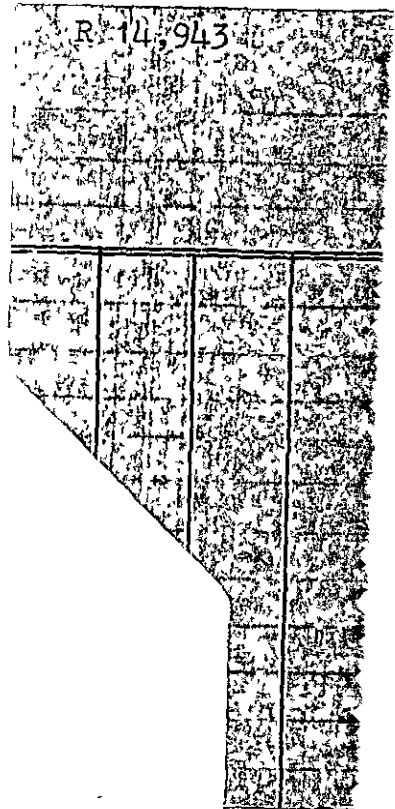 R 14,943